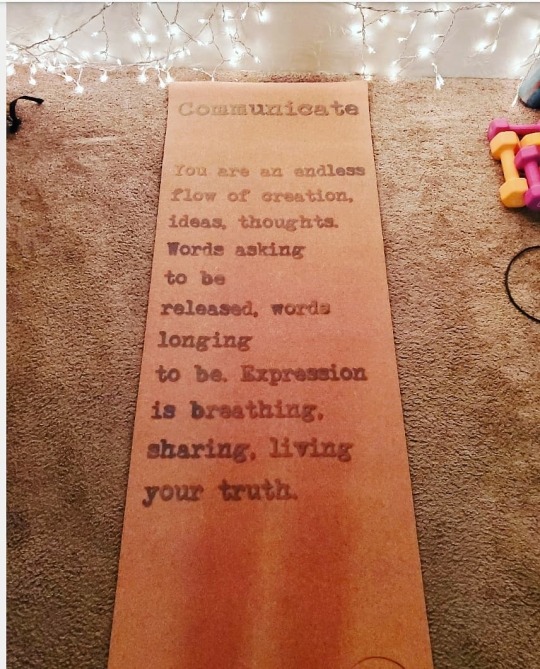 Communicate
You are an endless
flow of creation,
ideas, thoughts.
Words asking
to be
released, words
longing
to be. Expression
is breathing,
sharing, living
your truth.